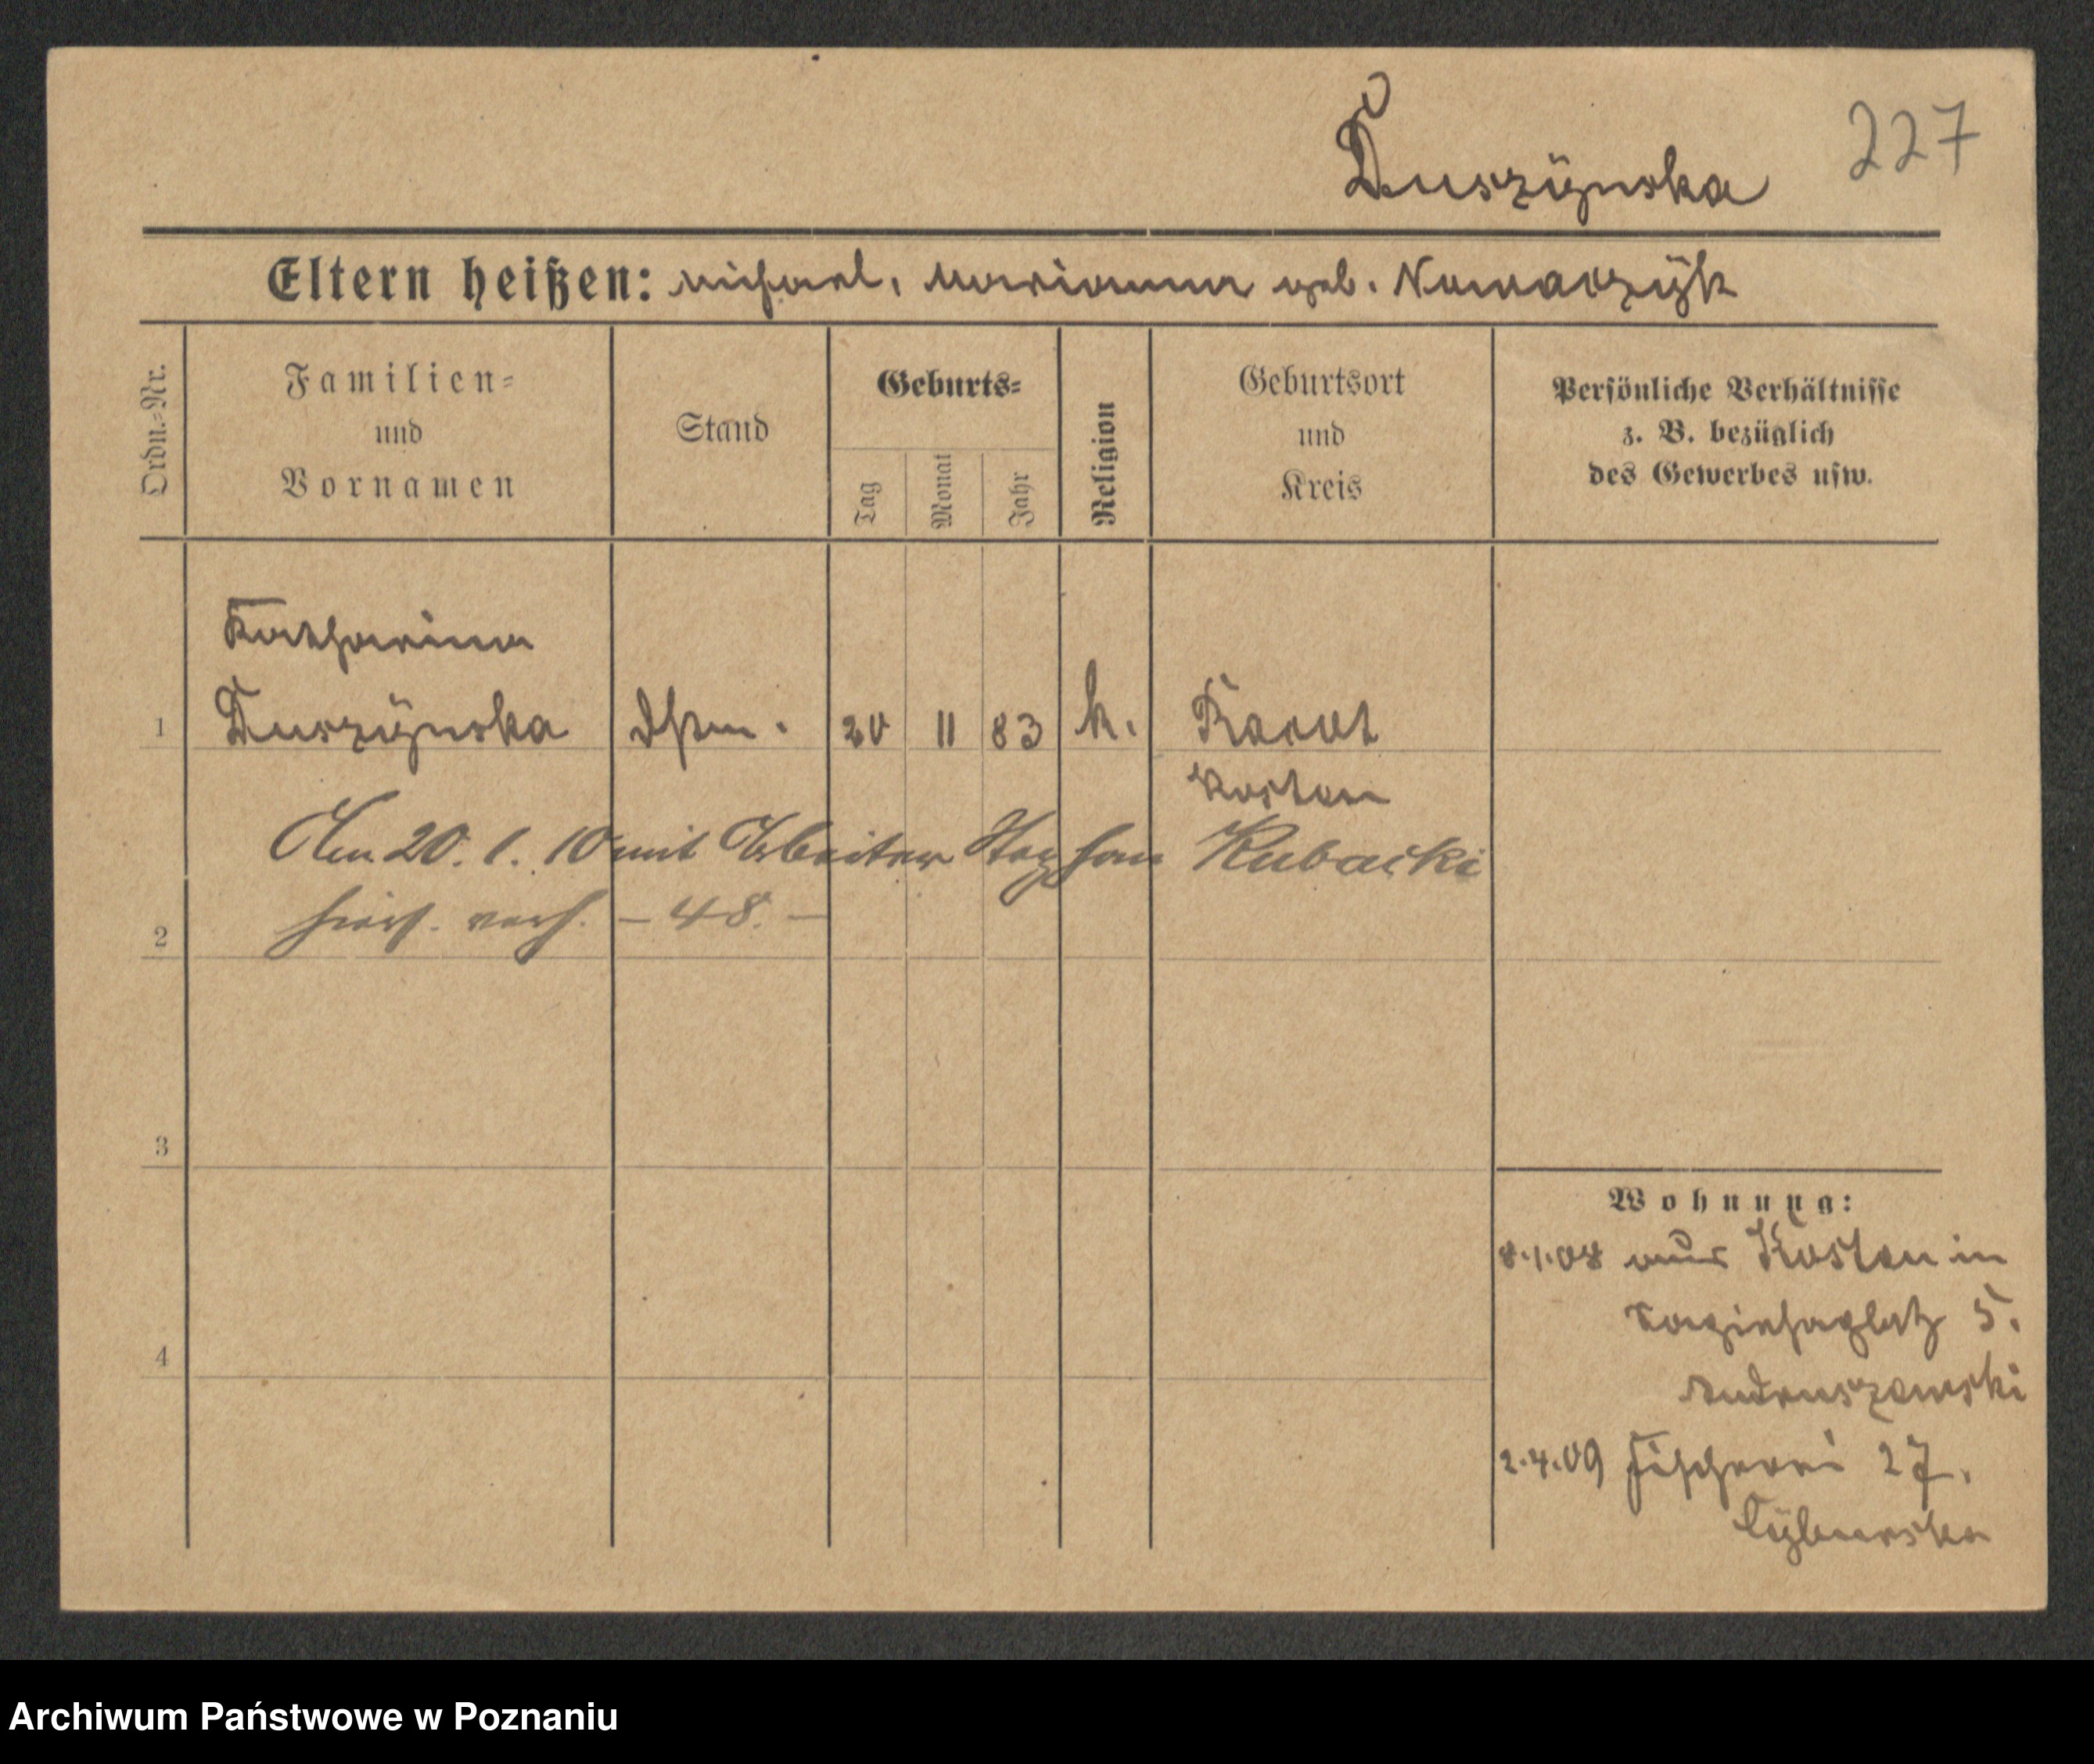 Duszÿnska 227
Eltern heißen: Michael, Marianna geb. Nowaczÿk
Ordn.-Nr.
Familien-
und
Vornamen
Stand
Geburts-
Tag
Monat
Jahr
Religion
Geburtsort
und
Kreis
Persönliche Verhältnisse
z. B. bezüglich
des Gewerbes usw.
Katharina
1 Duszÿnska 20 11 83 k. Racot
Kosten
Am 20. 1. 10 mit Arbeiter Stephan Kubacki
2 hiers. verh. – 48. –
3
4
Wohnung:
8.1.08 aus Kosten in
Sapiehaplatz 5.
Andruszewski
2.4.09 Fischerei 27.
Archiwum Państwowe w Poznaniu